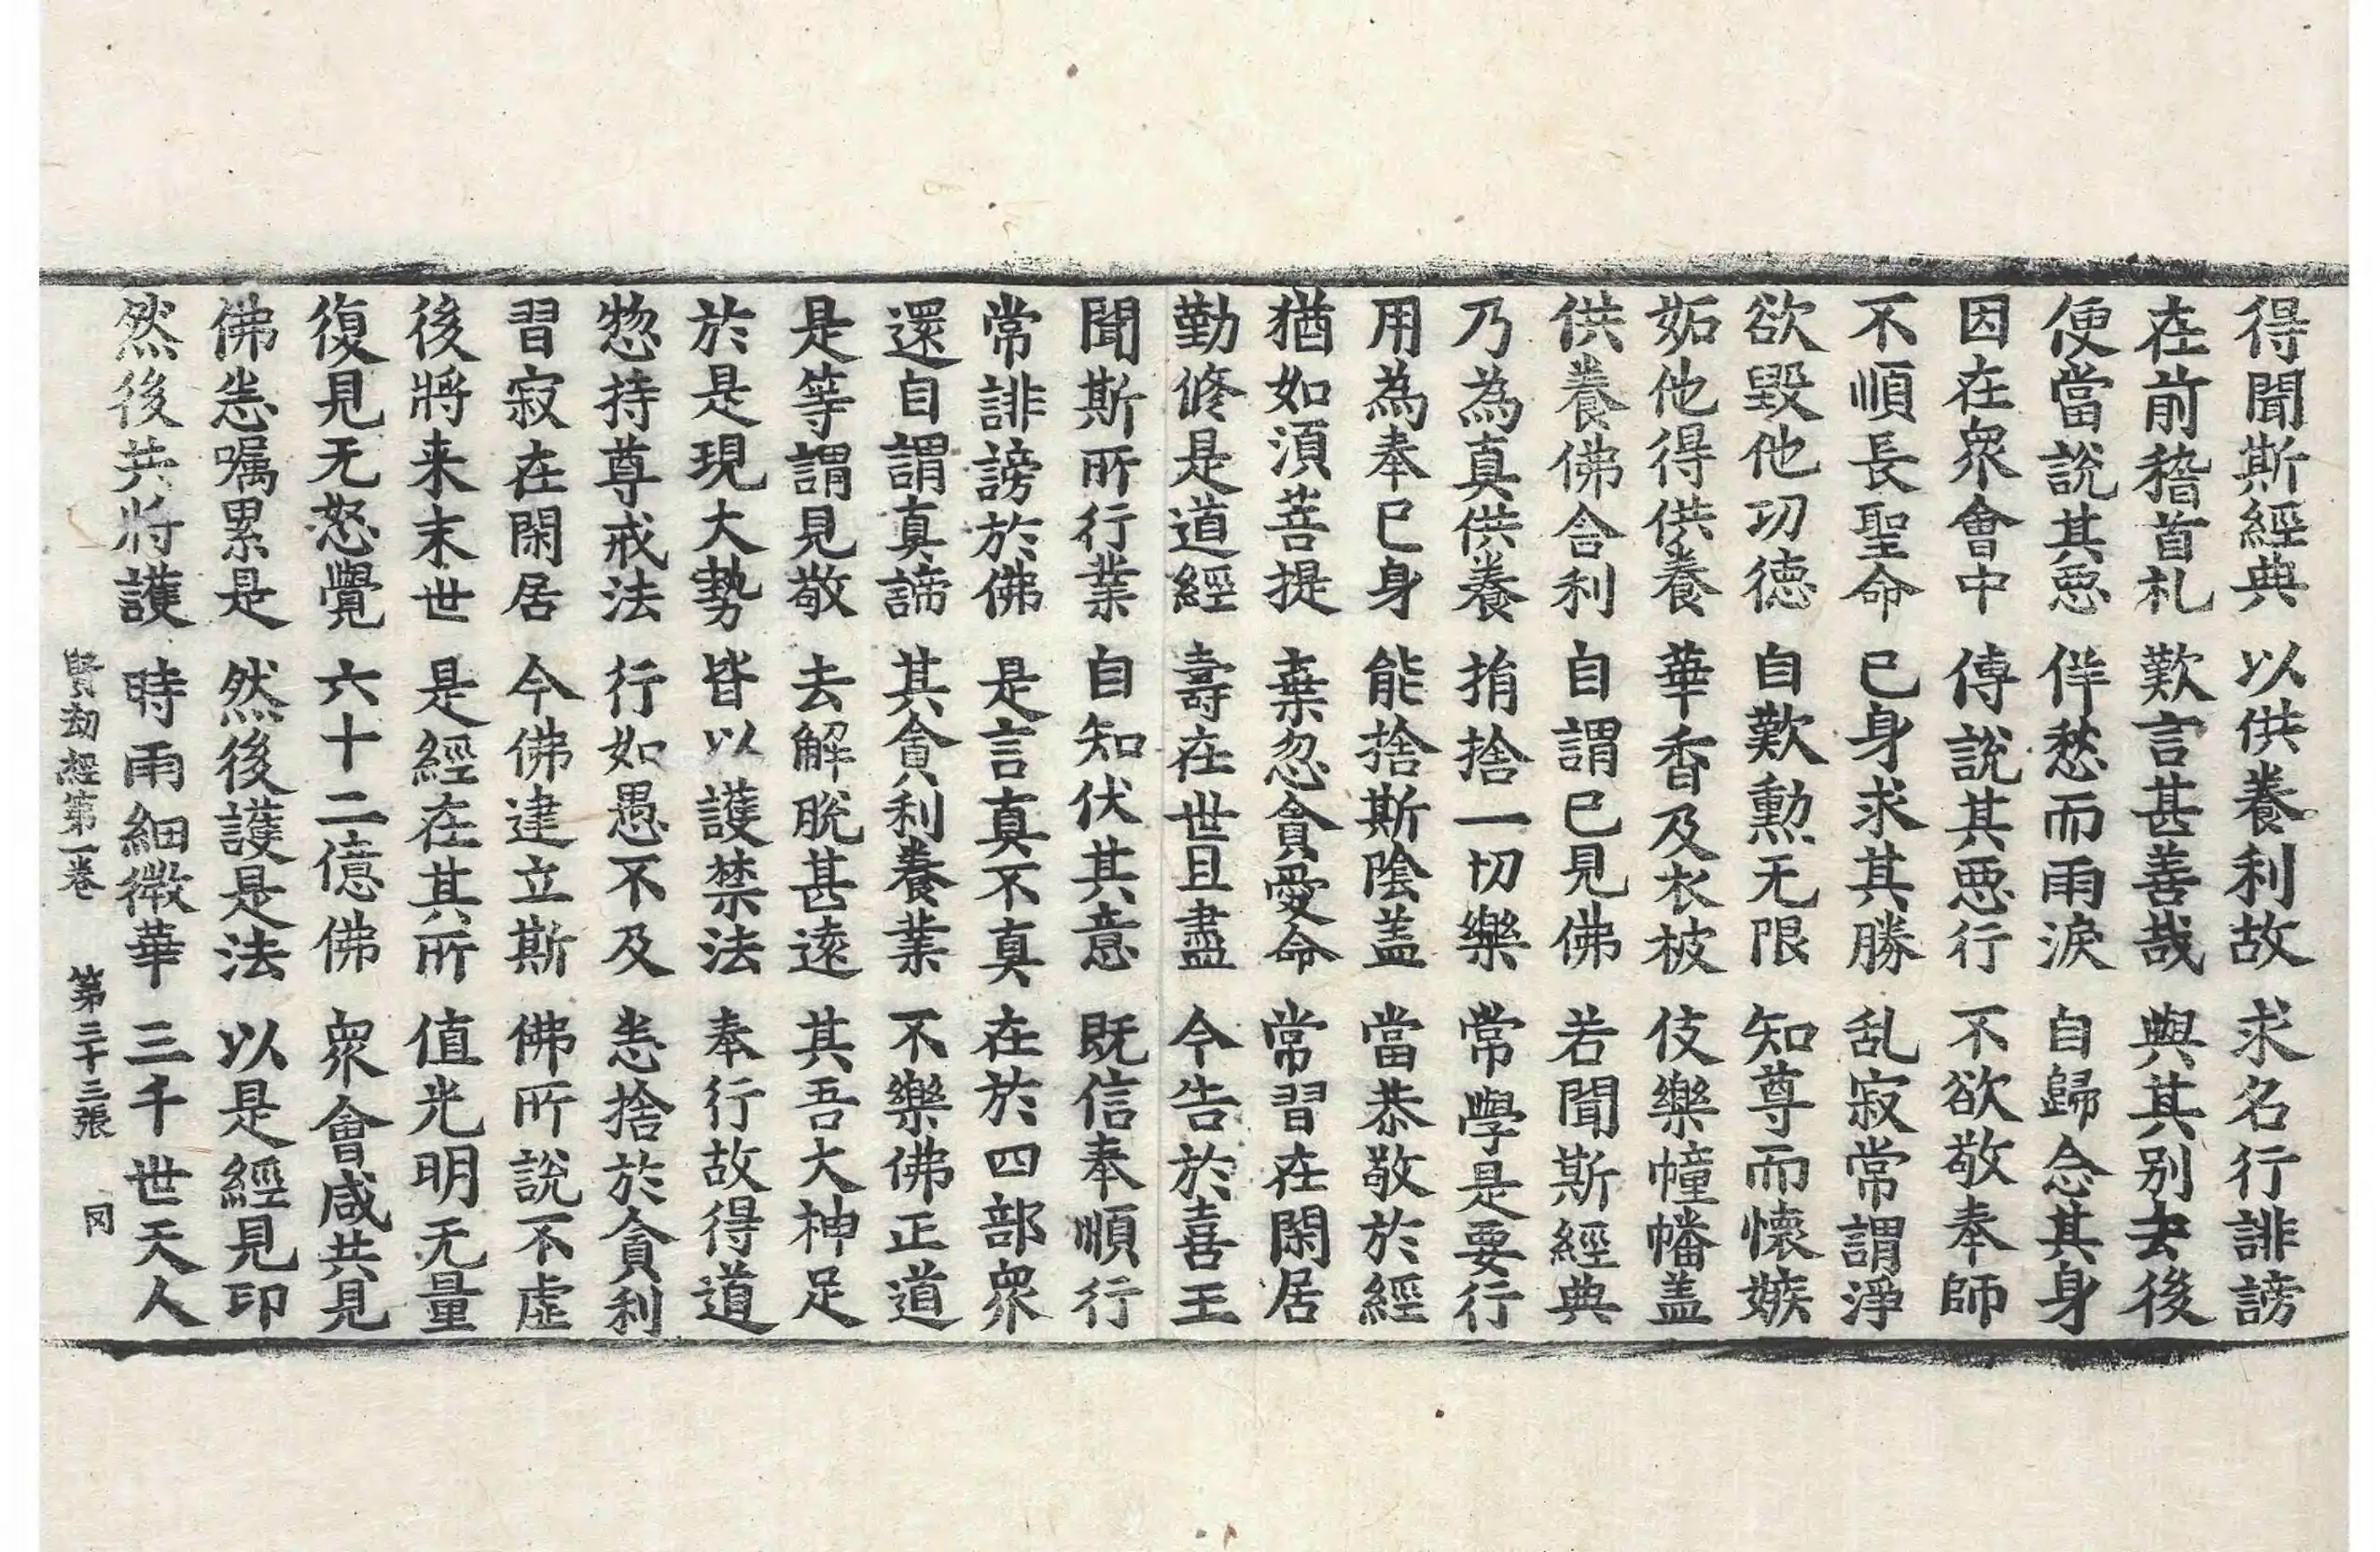 得聞斯經典 以供養利故 求名行誹謗
在前稽首札 歎言甚善哉 與其别去後
便當說其惡 佯愁而雨淚 自歸念其身
因在衆會中 傳說其惡行 不欲敬奉師
不順長聖命 已身求其勝 乱寂常謂淨
欲毀他功德 自歎勲无限 知尊而懷嫉
妬他得供養 華香及衣被 伎樂幢幡盖
供養佛舎利 自謂已見佛 若聞斯經典
乃為真供養 捐捨一切樂 常學是要行
用為奉已身 能捨斯陰盖 當恭敬於經
猶如湏菩提 棄忽貪愛命 常習在閑居
勤修是道經 壽在世且盡 今告於喜王
聞斯所行業 自知伏其意 既信奉順行
常誹謗於佛 是言真不真 在於四部衆
還自謂真諦 其貪利養業 不樂佛正道
是等謂見敬 去解脫甚遠 其吾大神足
於是現大勢 皆以護禁法 奉行故得道
惣持尊戒法 行如愚不及 恙捨於貪利
習寂在閑居 今佛建立斯 佛所說不虛
後將来末世 是經在其所 值光明无量
復見无怒覺 六十二億佛 衆會咸共見
佛恙嘱累是 然後護是法 以是經見印
然後共將護 時雨細微華 三千世天人
賢劫經第一卷 第三十三張 罔